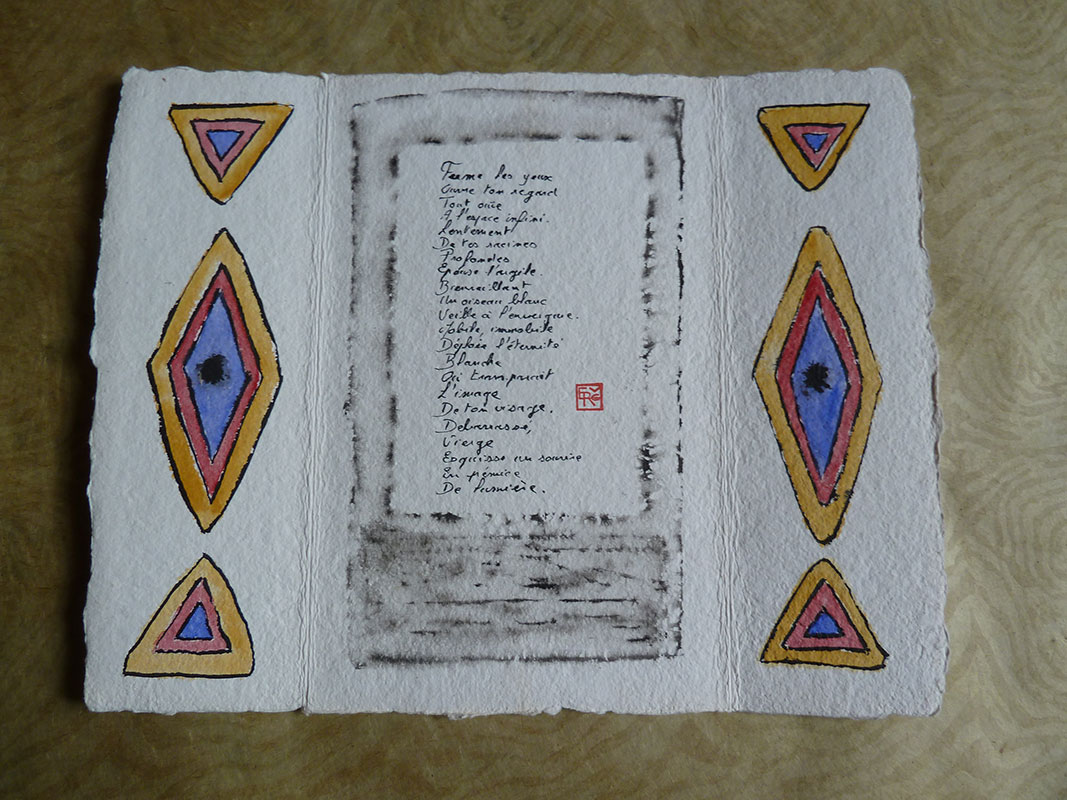 Ferme les yeux
Ouvre ton regard
Tout ouïe
A l'espace infini.
Lentement
De tes racines
Profondes
Epouse l'argile.
Bienveillant
Un oiseau blanc
Veille à l'envergure.
immobile
Déploie l'éternité
Blanche
Qui transparait
L'image
De ton visage.
Debarrassé,
Vierge
Esquisse un sourire
En prémice
De lumière.